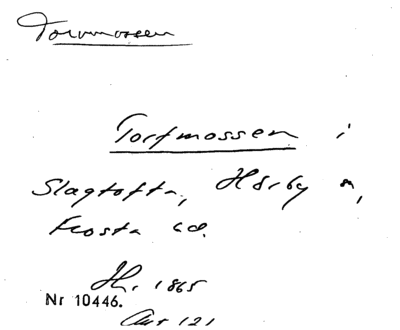 Torvmossen
Torfmossen i
Slagtofta, Hörby sn,
Frosta hd.
Hr. 1865
Nr 10446.
121